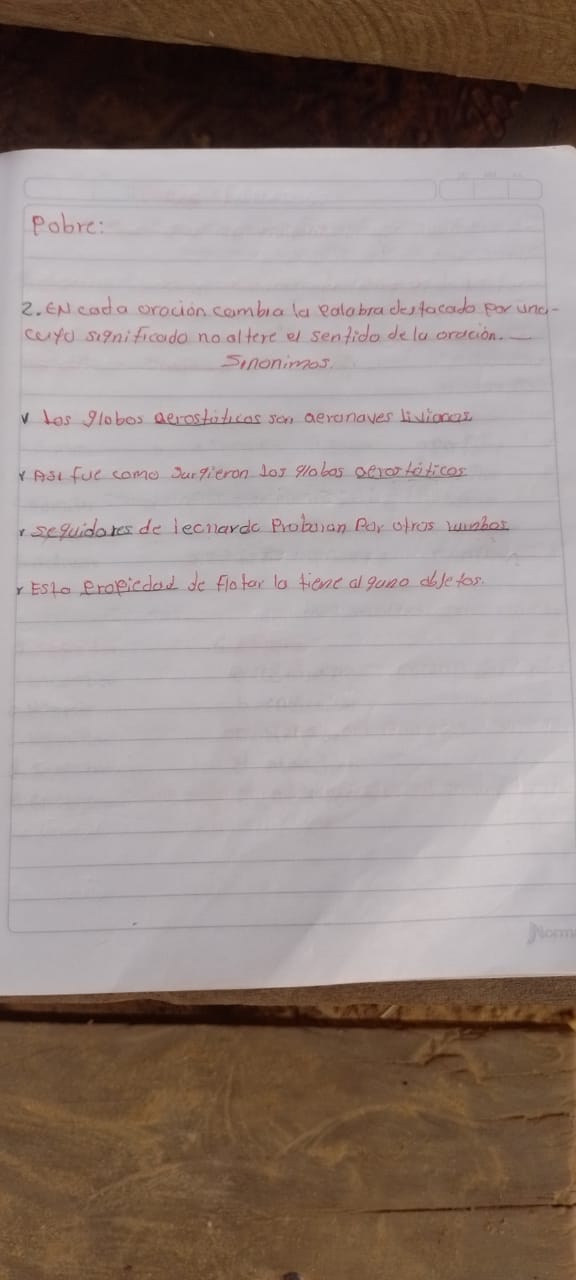 Pobre:
2. EN cada oración cambia la palabra destacado por una-
cuyo significado no altere el sentido de la oración. —
Sinonimos.
Los globos aerostáticos son aeronaves livianas
Así fue como Surgieron los globos aerostáticos
seguidores de leonardo Probaian Por otros rumbos
Esta Propiedad de flotar la tiene alguno objetos.
Norma